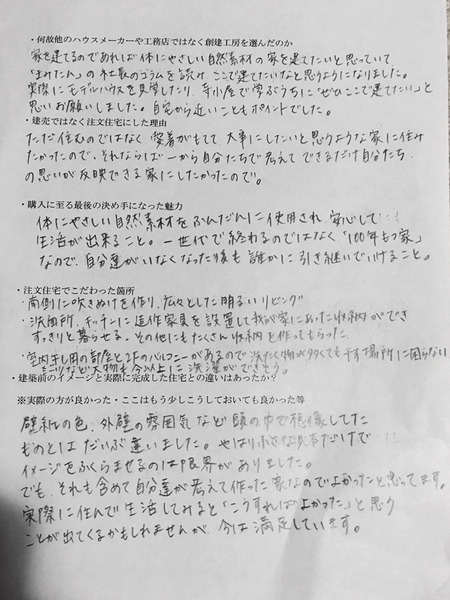 ・何故他のハウスメーカーや工務店ではなく創建工房を選んだのか
家を建てるのであれば体にやさしい自然素材の家を建てたいと思っていて
「まみたん」の社長のコラムを読み、ここで建てたいなと思うようになりました。
実際にモデルハウスを見学したり、寺小屋で学ぶうちに「ぜひここで建てたい」と
思いお願いしました。自宅から近いこともポイントでした。
・建売ではなく注文住宅にした理由
ただ住むのではなく、愛着がもてて大事にしたいと思うような家に住み
たかったので、それならば一から自分たちで考えてできるだけ自分たち
の思いが反映できる家にしたかったので。
・購入に至る最後の決め手になった魅力
体にやさしい自然素材をふんだんに使用され、安心して
生活が出来ること。一世代で終わるのではなく「100年もつ家」
なので、自分達がいなくなった後も誰かに引き継いでいけること。
・注文住宅でこだわった箇所
・南側に吹きぬけを作り、広々とした明るいリビング
・洗面所、キッチンに造作家具を設置して我が家にあった収納ができ
すっきりと暮らせる。その他にもたくさん収納を作ってもらった。
・室内干し用の部屋と2Fのバルコニーがあるので洗たく物が多くても干す場所に困らない
など大物も今以上に洗濯ができそう。
・建築前のイメージと実際に完成した住宅との違いはあったか？
※実際の方が良かった・ここはもう少しこうしておいても良かった等
壁紙の色、外壁の雰囲気など頭の中で想像してた
ものとはだいぶ違いました。やはり小さな見本だけで
イメージをふくらませるのは限界がありました。
でも、それも含めて自分達が考えて作った家なのでよかったと思ってます。
実際に住んで生活してみると「こうすれば良かった」と思う
ことが出てくるかもしれませんが、今は満足しています。